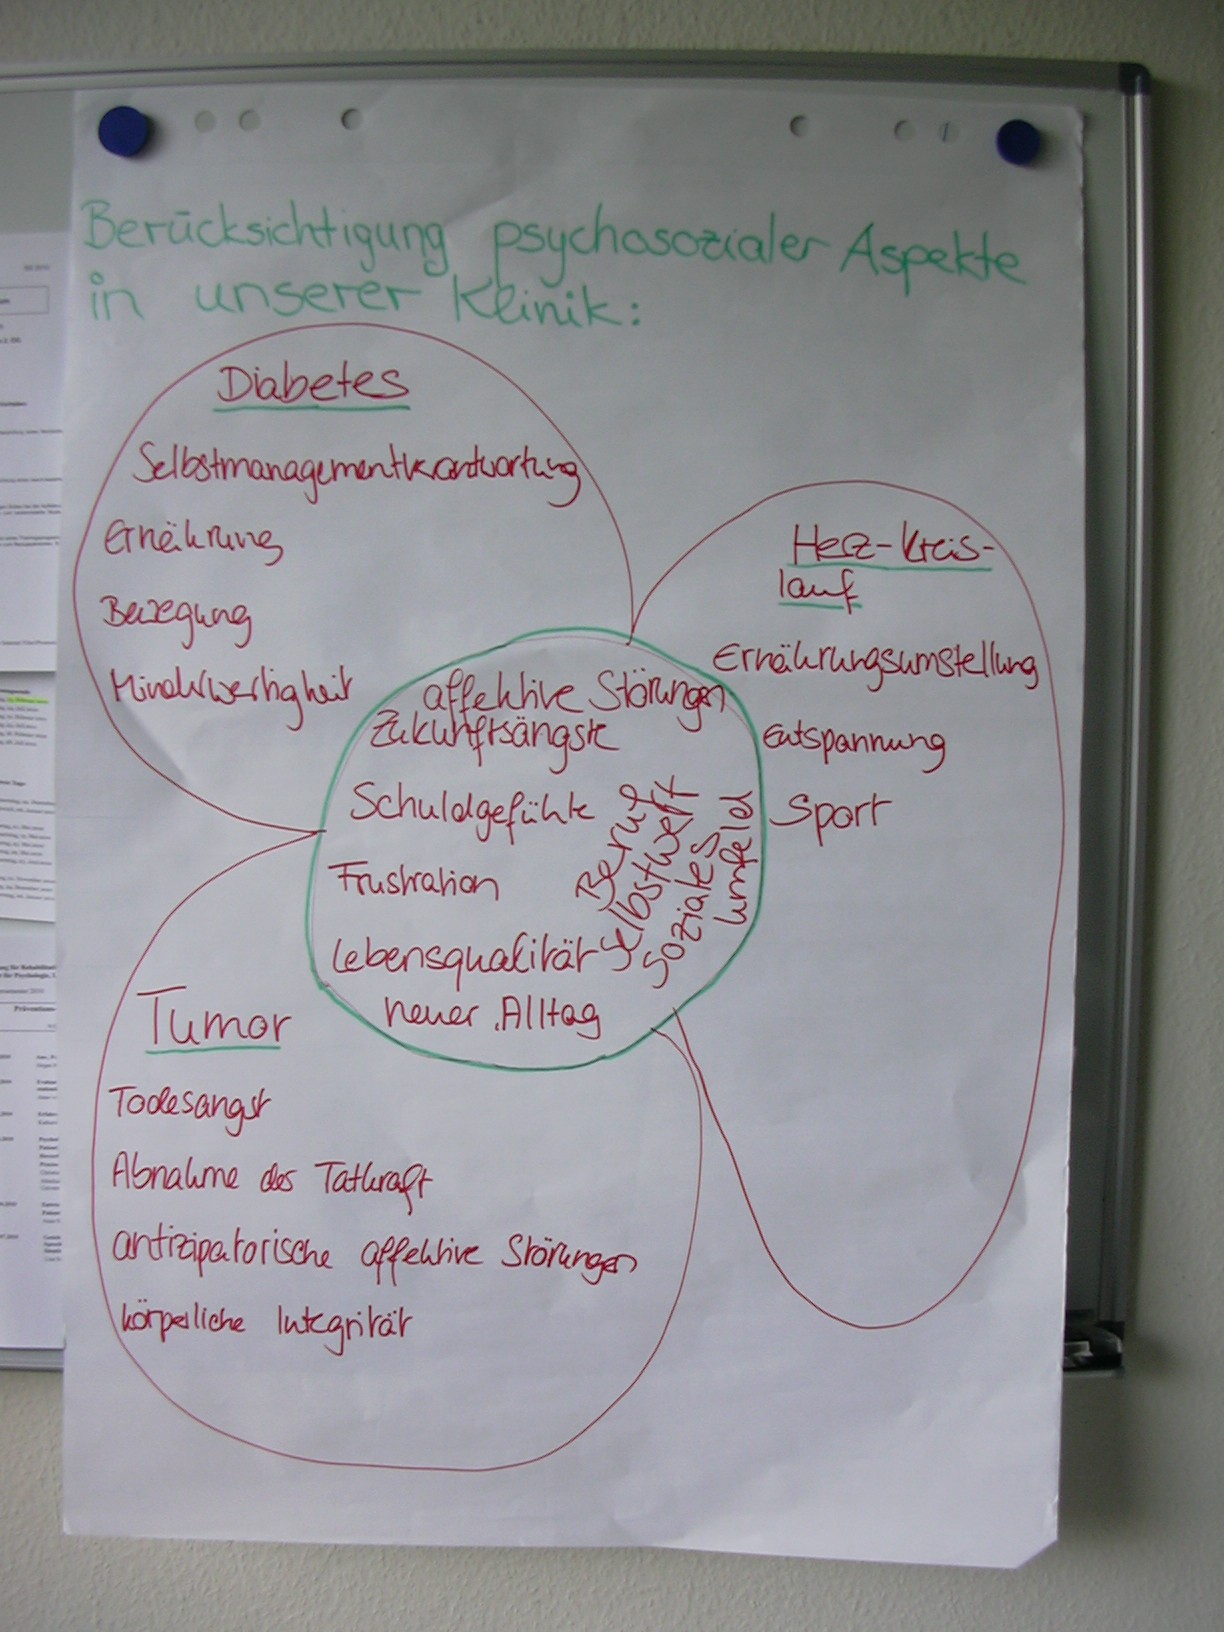 Berücksichtigung psychosozialer Aspekte
in unserer Klinik:
Diabetes
Selbstmanagementverantwortung
Ernährung
Bewegung
Minderwertigkeit
Herz-Kreis-
lauf
Ernährungsumstellung
Entspannung
Sport
affektive Störungen
Zukunftsängste
Schuldgefühle
Frustration
Lebensqualität
neuer Alltag
Beruf
Selbstwert
Soziales
Umfeld
Tumor
Todesangst
Abnahme der Tatkraft
antizipatorische affektive Störungen
körperliche Integrität